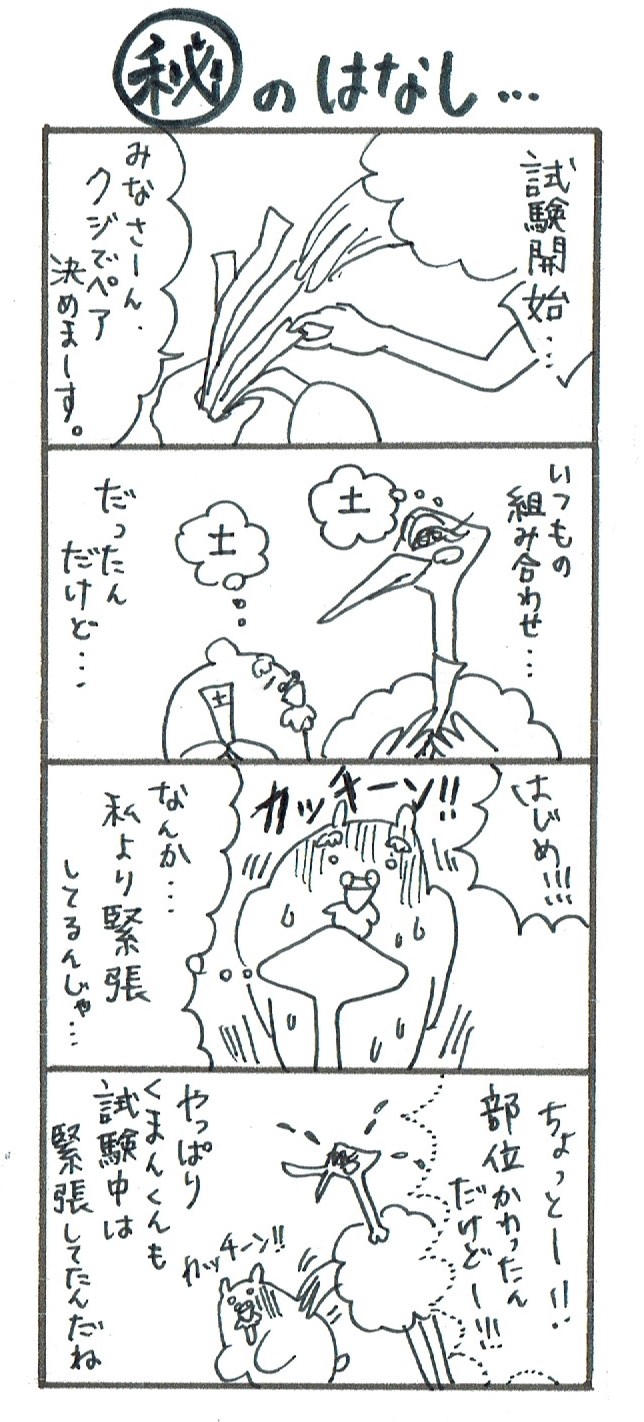 ㊙のはなし…
試験開始…
みなさーん、
クジでペア
決めまーす。
いつもの
組み合わせ…
土
土
土
だったん
だけど…
はじめ!!!
カッキーン!!
なんか…
私より緊張
してるんじゃ…
ちょっとー!!
部位かわったん
だけどー!!!
カッチーン!!
やっぱり
くまんくんも
試験中は
緊張してたんだね